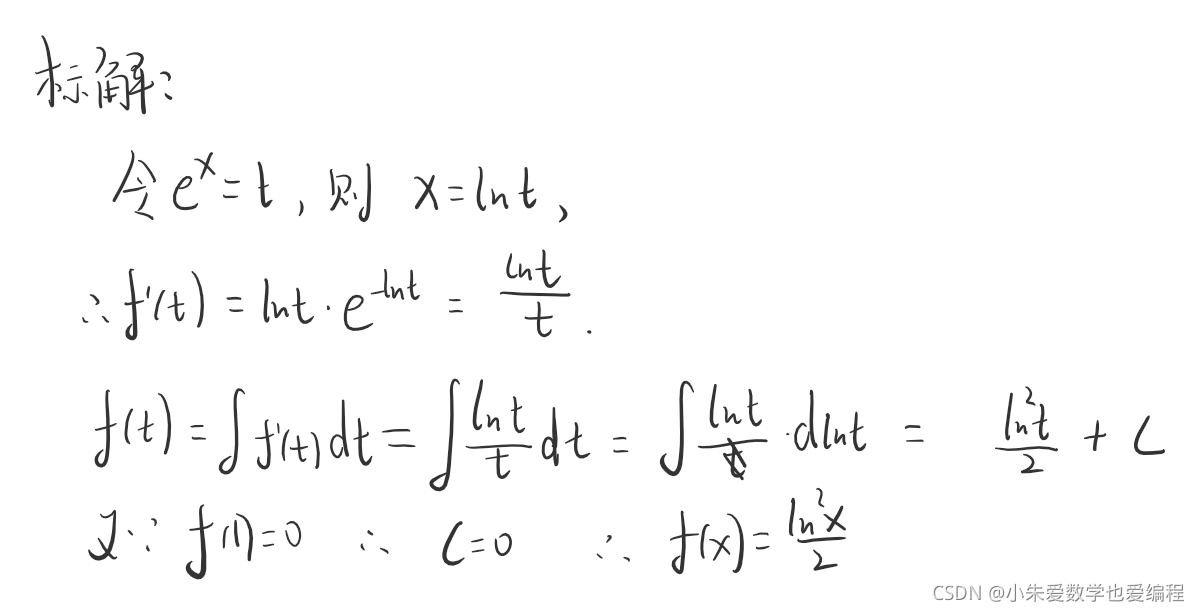 标解:
令 e^x = t , 则 x = ln t ,
∴ f'(t) = ln t · e^{-ln t} = \frac{ln t}{t} .
f(t) = ∫ f'(t) dt = ∫ \frac{ln t}{t} dt = ∫ \frac{ln t}{t} · d ln t = \frac{ln^2 t}{2} + C
又∵ f(1) = 0 ∴ C = 0 ∴ f(x) = \frac{ln^2 x}{2}
CSDN @小朱爱数学也爱编程